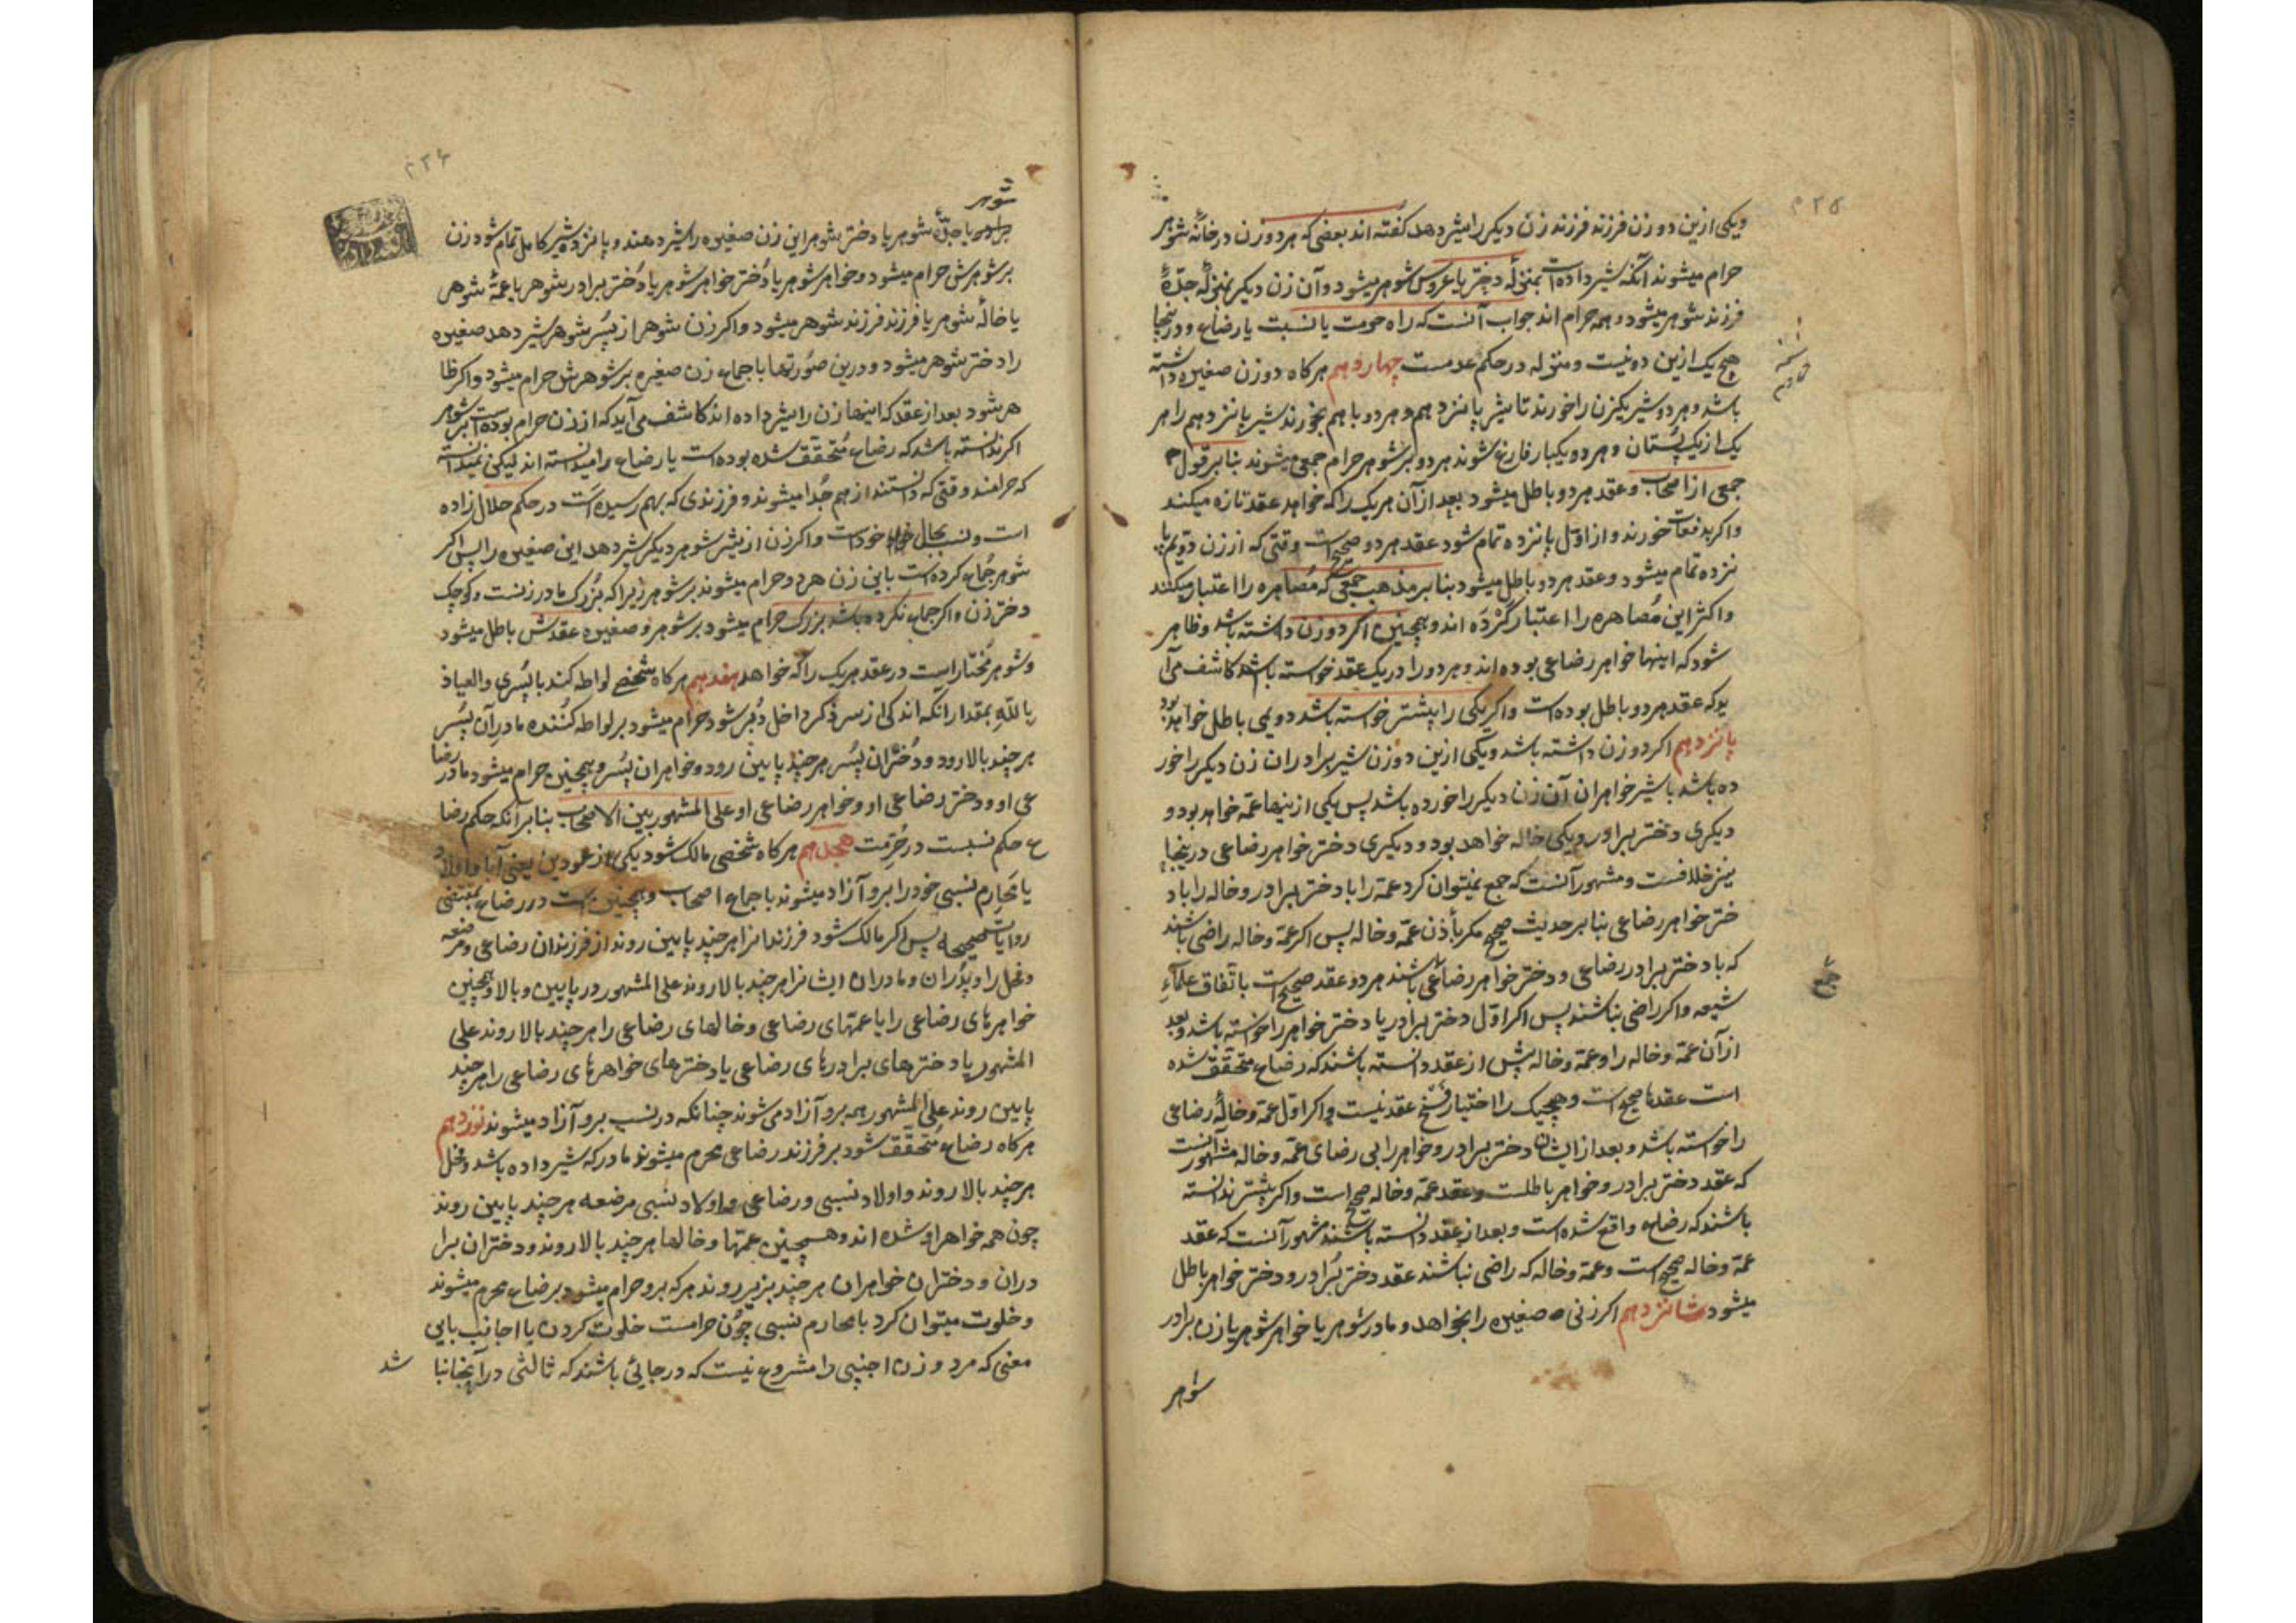 ویکی ازین دو زن فرزند فرزند زن دیکر را شیر دهد کفته اند بعضی که هر دو زن در خانهٔ شوهر
حرام میشوند آنکه شیر داده است بمنزلهٔ دختر یا عروس شوهر میشود و آن زن دیکر بمنزلهٔ جدّهٔ
فرزند شوهر میشود و همه حرام اند جواب آنست که راه حرمت یا نسبت یا رضاع و در ینجا
هیچ یک ازین دو نیست و منزله در حکم عدمست چهاردهم هرکاه دو زن صغیره داشته
باشد و هر دو شیر یکزن را خورند تا شیر پانزدهم و هر دو با هم بخورند شیر پانزدهم را هر
یک از یک پستان و هر دو یکبار فارغ شوند هر دو بر شوهر حرام جمعی میشوند بنا بر قول
جمعی از اصحاب و عقد هر دو باطل میشود بعد از آن هر یک را که خواهد عقد تازه میکند
واکر بدفعات خورند و از اوّل پانزده تمام شود عقد هر دو صحیح است وقتی که از زن دویم پا
نزده تمام میشود و عقد هر دو باطل میشود بنا بر مذهب جمعی که مصاهره را اعتبار میکنند
واکثر این مُصاهره را اعتبار کرْدَه اند و همچنین اکر دو زن داشته باشد و ظاهر
شود که اینها خواهر رضاعی بوده اند و هر دو را در یک عقد خواسته باشد کاشف می آ
ید که عقد هر دو باطل بوده است واکر یکی را پیشتر خواسته باشد دویمی باطل خواهد بود
پانزدهم اکر دو زن داشته باشد ویکی ازین دو زن شیر برادران زن دیکر را خور
ده باشد یا شیر خواهران آن زن دیکر را خورده باشد پس یکی ازینها عمّه خواهد بود و
دیکری دختر برادر ویکی خاله خواهد بود و دیکری دختر خواهر رضاعی در ینجا
نیز خلافست و مشهور آنست که جمع نمیتوان کرد عمّه را با دختر برادر و خاله را با د
ختر خواهر رضاعی بنا بر حدیث صحیح مکر بأذن عمّه و خاله پس اکر عمّه و خاله راضی باشند
که با دختر برادر رضاعی و دختر خواهر رضاعی باشند هر دو عقد صحیح است باتفاق علمآءِ
شیعه واکر راضی نباشند پس اکر اوّل دختر برادر یا دختر خواهر را خواسته باشد و بعد
از آن عمّه و خاله را و عمّه و خاله پیش از عقد دانسته باشند که رضاع متحقّق شده
است عقدها صحیح است و هیچیک را اختیار فسخ عقد نیست واکر اوّل عمّه و خالهٔ رضاعی
را خواسته باشد و بعد از ایشان دختر برادر و خواهر را بی رضای عمّه و خاله مشهور آنست
که عقد دختر برادر و خواهر باطلست و عقد عمّه و خاله صحیح است واکر پیشتر ندانسته
باشند که رضاع واقع شده است و بعد از عقد دانسته باشند مشهور آنست که عقد
عمّه و خاله صحیح است و عمّه و خاله که راضی نباشند عقد دختر برادر و دختر خواهر باطل
میشود شانزدهم اکر زنی صغیره را بخواهد و مادر شوهر یا خواهر شوهر یا زن برادر
شوهر
شوهر
یا جدّهٔ شوهر یا دختر شوهر این زن صغیره را شیر دهند و پانزده شیر کامل تمام شود زن
بر شوهرش حرام میشود و خواهر شوهر یا دُختر خواهر شوهر یا دُختر برادر شوهر یا عمّهٔ شوهر
یا خالهٔ شوهر یا فرزند فرزند شوهر میشود واکر زن شوهر از پسر شوهر شیر دهد صغیره
را دختر شوهر میشود و درین صُورتها باجماع زن صغیره بر شوهرش حرام میشود واکر ظا
هر شود بعد از عقد که اینها زن را شیر داده اند کاشف می آید که از زن حرام بوده است بر شوهر
اکر ندانسته باشد که رضاع مُتحقّق شده بوده است یا رضاع را میدانسته اند لیکن نمیدانسته
که حرامند وقتی که دانستند از هم جُدا میشوند و فرزندی که بهم رسیده است در حکم حلال زاده
است و نسب بحال خود است واکر زن از شیر شوهر دیکر شیر دهد این صغیره را پس اکر
شوهر جُماع کرده است باین زن هر دو حرام میشوند بر شوهر زیرا که بُزرک مادر زنست و کوچک
دختر زن واکر جماع نکرده باشد بزرک حرام میشود بر شوهر و صغیره عقدش باطل میشود
و شوهر مُختار است در عقد هر یک را که خواهد هفدهم هرکاه شخصی لواطه کند با پُسری والعیاذ
باللّهِ بمقدار انکه اندکی از سر ذکر داخل دُبر شود حرام میشود بر لواطه کُننده مادرِ آن پُسر
هر چند بالا رود و دُختران پُسر هر چند پایین رود و خواهران پُسر و همچنین حرام میشود مادر رضا
عی او و دختر رضاعی او و خواهر رضاعی او علی المشهور بین الاصحاب بنا بر آنکه حکم رضا
ع حکم نسبت در حُرمت هجدهم هرکاه شخصی مالک شود یکی از عمودین یعنی آبا و اولاد
یا محارم نسبی خود را برو آزاد میشوند باجماع اصحاب و همچنین است در رضاع بمقتضی
روایات صحیحه پس اکر مالک شود فرزندانرا هر چند پایین روند از فرزندان رضاعی و مرضعه
و فحل را و پدران و مادران ایشانرا هر چند بالا روند علی المشهور در پایین و بالا و همچنین
خواهرهای رضاعی را یا عمّتهای رضاعی و خالهای رضاعی را هر چند بالا روند علی
المشهور یا دخترهای برادرهای رضاعی یا دخترهای خواهرهای رضاعی را هر چند
پایین روند علی المشهور همه برو آزاد می شوند چنانکه در نسب برو آزاد میشوند نوزدهم
هرکاه رضاع مُتحقّق شود بر فرزند رضاعی محرم میشوند مادر که شیر داده باشد و فحل
هر چند بالا روند و اولاد نسبی و رضاعی و اولاد نسبی مرضعه هر چند پایین روند
چون همه خواهر او شده اند و همچنین عمّتها و خالها هر چند بالا روند و دختران برا
دران و دختران خواهران هر چند بزیر روند هر که برو حرام میشود برضاع محرم میشوند
و خلوت میتوان کرد با محارم نسبی چُون حرامست خلوت کردن با اجانب باین
معنی که مرد و زن اجنبی را مشروع نیست که در جائی باشند که ثالثی در آنجا نبا
شد